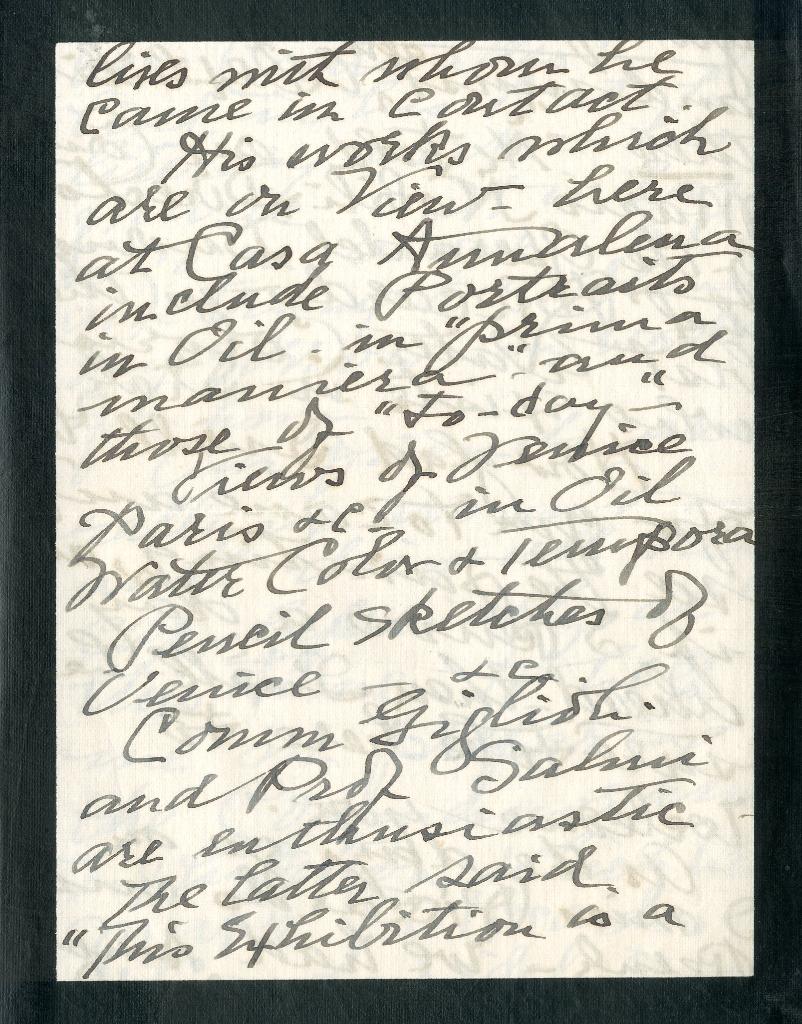 lives with whom he
came in contact.
His works which
are on View - here
at Casa Annalena
include Portraits
in Oil. in "prima
maniera" and
those of "to-day" -
Views of Venice
Paris &c - in Oil
Water Color & Tempora
Pencil sketches of
Venice - &c
Comm Giglioli.
and Prof Salmi
are enthusiastic
The latter said
"This Exhibition is a